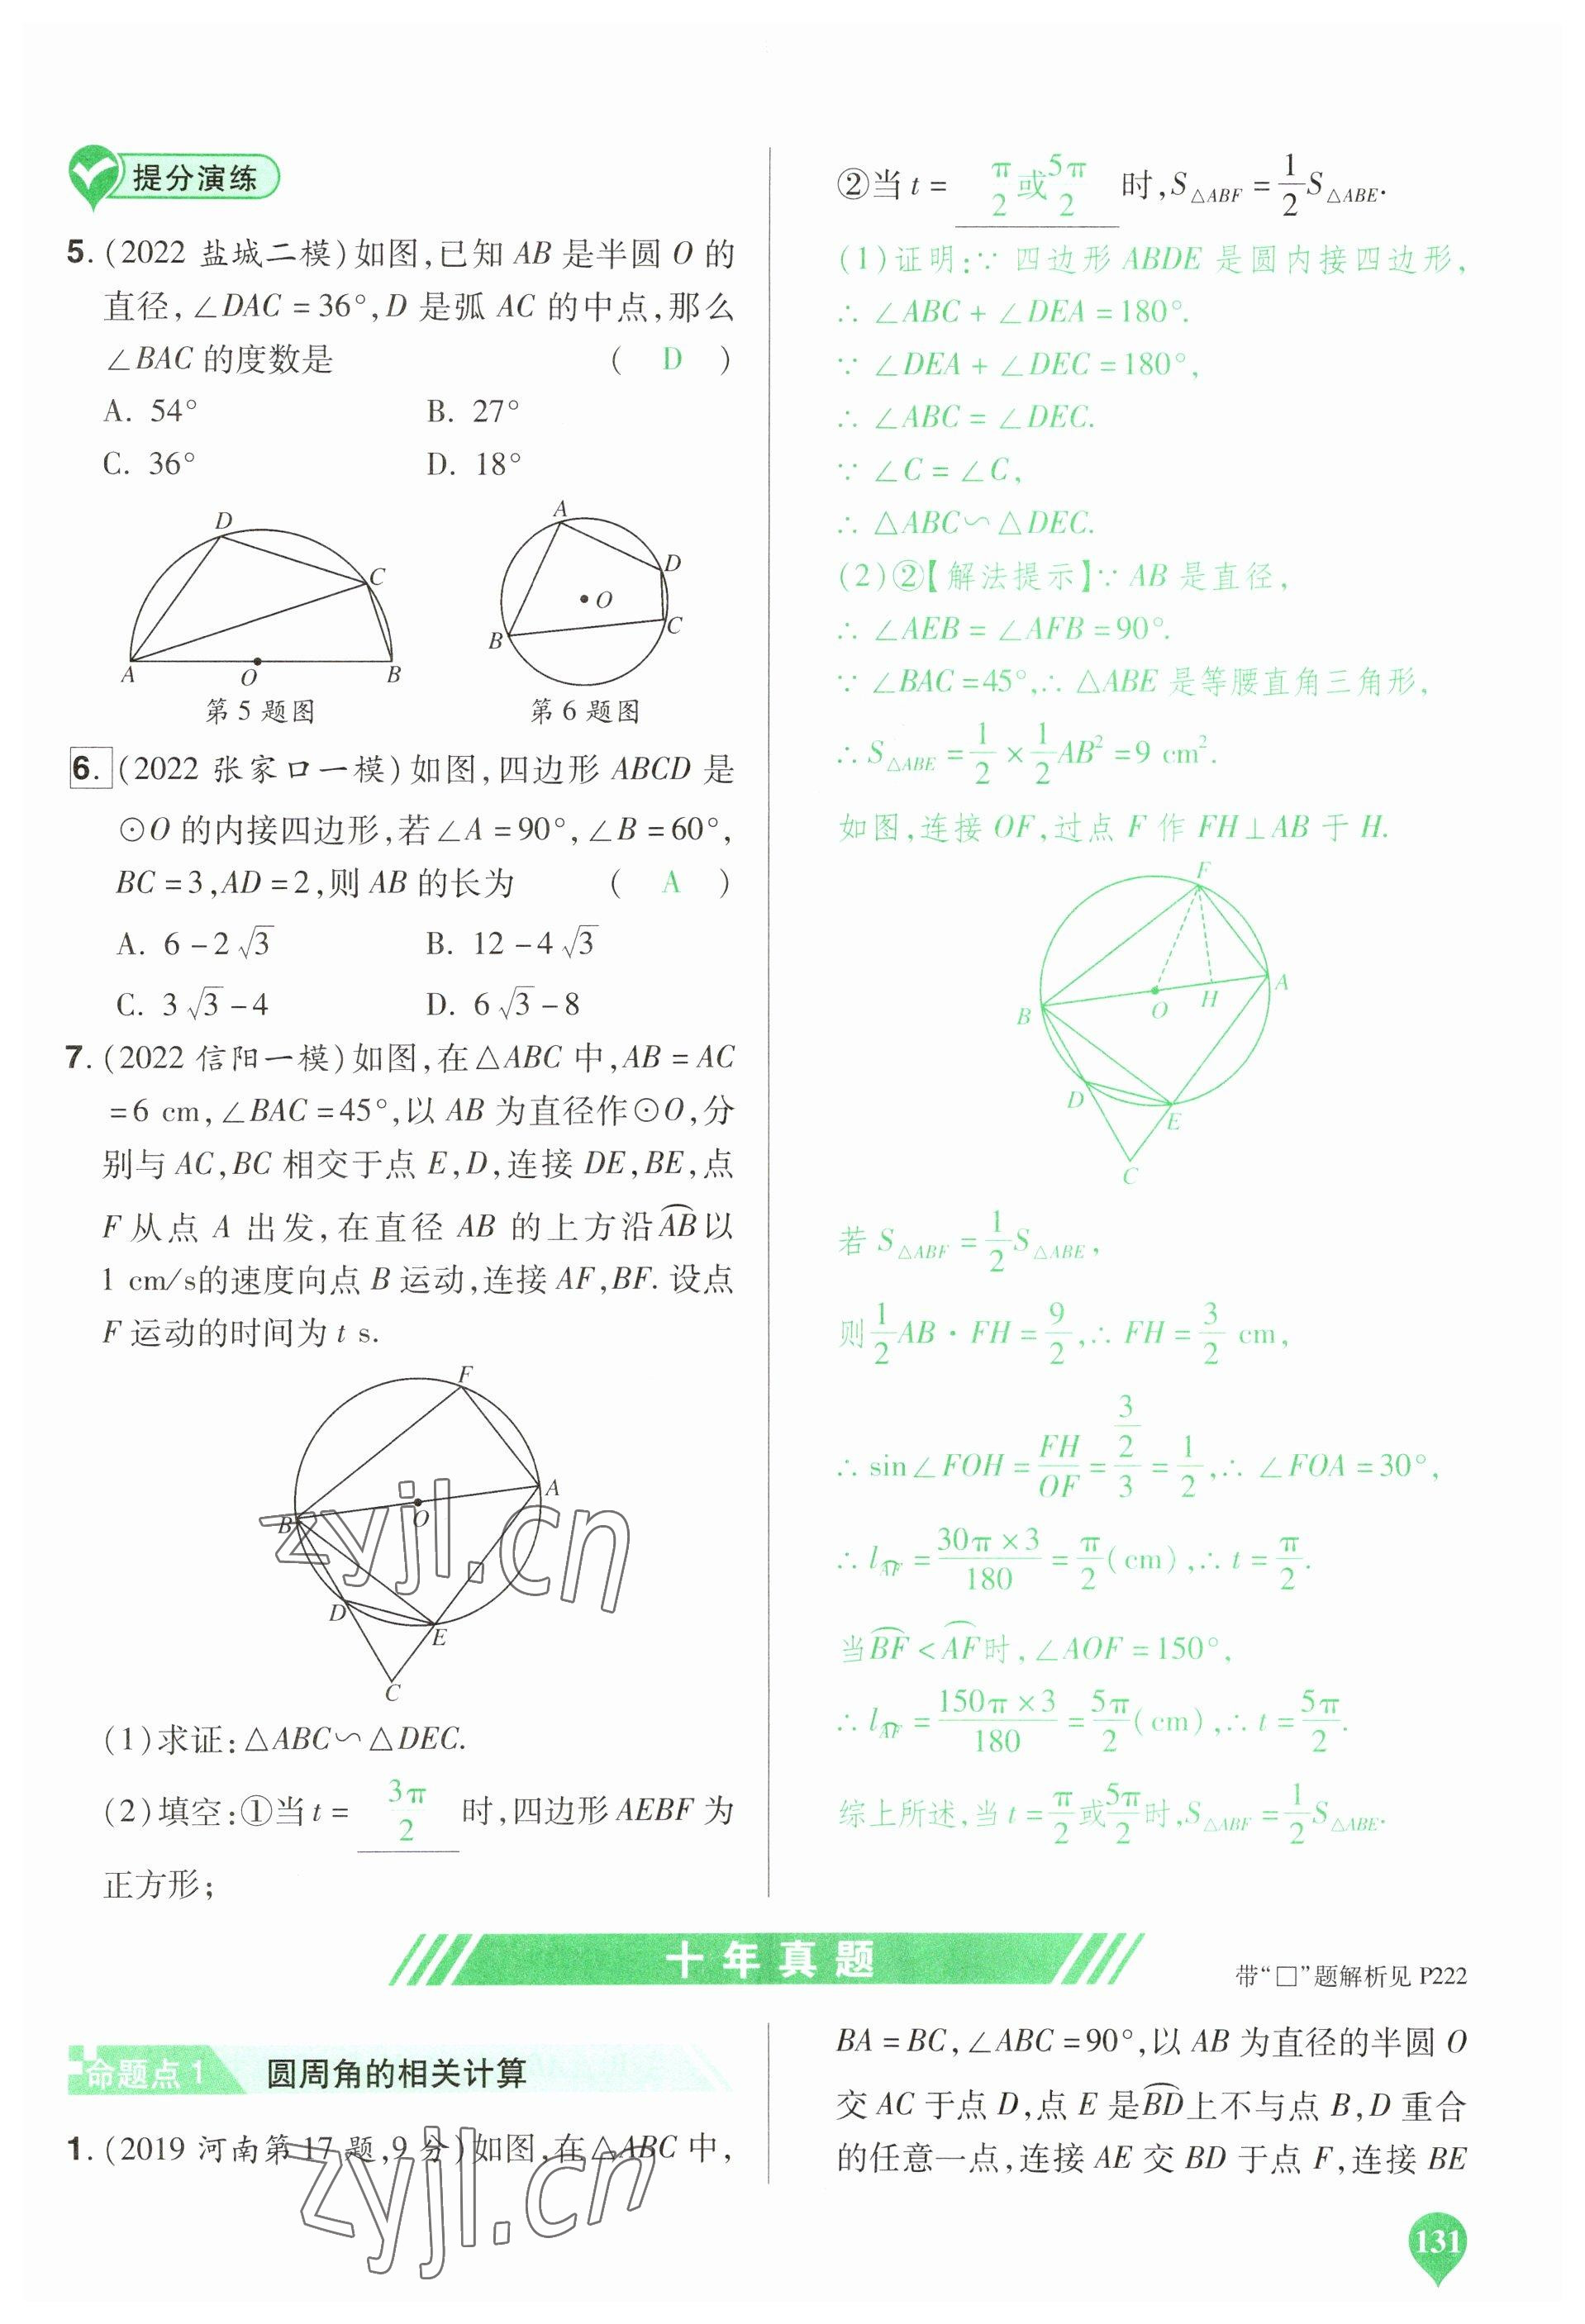 提分演练
5. (2022 盐城二模)如图,已知 AB 是半圆 O 的
直径,∠DAC = 36°,D 是弧 AC 的中点,那么
∠BAC 的度数是 ( D )
A. 54° B. 27°
C. 36° D. 18°
D
C
A
O
B
第 5 题图
A
D
O
B
C
第 6 题图
6. (2022 张家口一模)如图,四边形 ABCD 是
⊙O 的内接四边形,若∠A = 90°,∠B = 60°,
BC = 3,AD = 2,则 AB 的长为 ( A )
A. 6 - 2√3 B. 12 - 4√3
C. 3√3 - 4 D. 6√3 - 8
7. (2022 信阳一模)如图,在△ABC 中,AB = AC
= 6 cm,∠BAC = 45°,以 AB 为直径作⊙O,分
别与 AC,BC 相交于点 E,D,连接 DE,BE,点
F 从点 A 出发,在直径 AB 的上方沿⌒AB以
1 cm/s的速度向点 B 运动,连接 AF,BF. 设点
F 运动的时间为 t s.
F
A
O
B
D
E
C
zyjl.cn
(1)求证:△ABC∽△DEC.
(2)填空:①当 t = 3π/2 时,四边形 AEBF 为
正方形;
②当 t = π/2或5π/2 时,S△ABF = 1/2 S△ABE.
(1)证明:∵ 四边形 ABDE 是圆内接四边形,
∴ ∠ABC + ∠DEA = 180°.
∵ ∠DEA + ∠DEC = 180°,
∴ ∠ABC = ∠DEC.
∵ ∠C = ∠C,
∴ △ABC∽△DEC.
(2)②【解法提示】∵ AB 是直径,
∴ ∠AEB = ∠AFB = 90°.
∵ ∠BAC = 45°,∴ △ABE 是等腰直角三角形,
∴ S△ABE = 1/2 × 1/2 AB² = 9 cm².
如图,连接 OF,过点 F 作 FH⊥AB 于 H.
F
A
H
O
B
D
E
C
若 S△ABF = 1/2 S△ABE,
则 1/2 AB · FH = 9/2,∴ FH = 3/2 cm,
∴ sin∠FOH = FH/OF = (3/2)/3 = 1/2,∴ ∠FOA = 30°,
∴ l⌒AF = 30π × 3/180 = π/2(cm),∴ t = π/2.
当⌒BF < ⌒AF时,∠AOF = 150°,
∴ l⌒AF = 150π × 3/180 = 5π/2(cm),∴ t = 5π/2.
综上所述,当 t = π/2或5π/2时,S△ABF = 1/2 S△ABE.
十年真题
带“□”题解析见 P222
命题点 1 圆周角的相关计算
1. (2019 河南第 17 题,9 分)如图,在△ABC 中,
zyjl.cn
BA = BC,∠ABC = 90°,以 AB 为直径的半圆 O
交 AC 于点 D,点 E 是⌒BD上不与点 B,D 重合
的任意一点,连接 AE 交 BD 于点 F,连接 BE
131